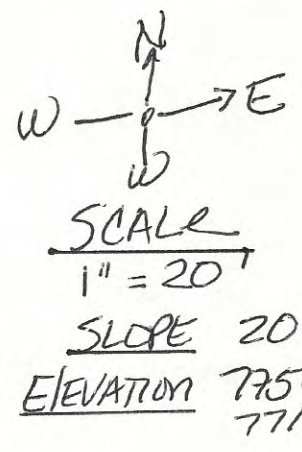 N
W E
W
SCALE
1" = 20'
SLOPE 20
ELEVATION 775
77